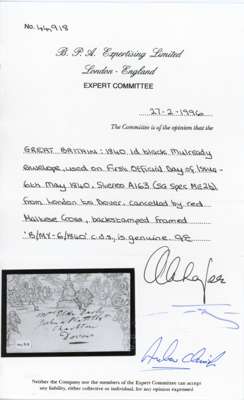 No. 44918
B. P. A. Expertising Limited
London - England
EXPERT COMMITTEE
27-2-1996
The Committee is of the opinion that the
GREAT BRITAIN: 1840 1d black Mulready
envelope, used on First Official Day of Issue -
6th May 1840, Stereo A163, (SG Spec ME2b)
from London to Dover, cancelled by red
Maltese Cross, backstamped framed
'B/MY-6/1840' c.d.s., is genuine.
Dover
Neither the Company nor the members of the Expert Committee can accept
any liability, either collective or individual, for any opinion expressed